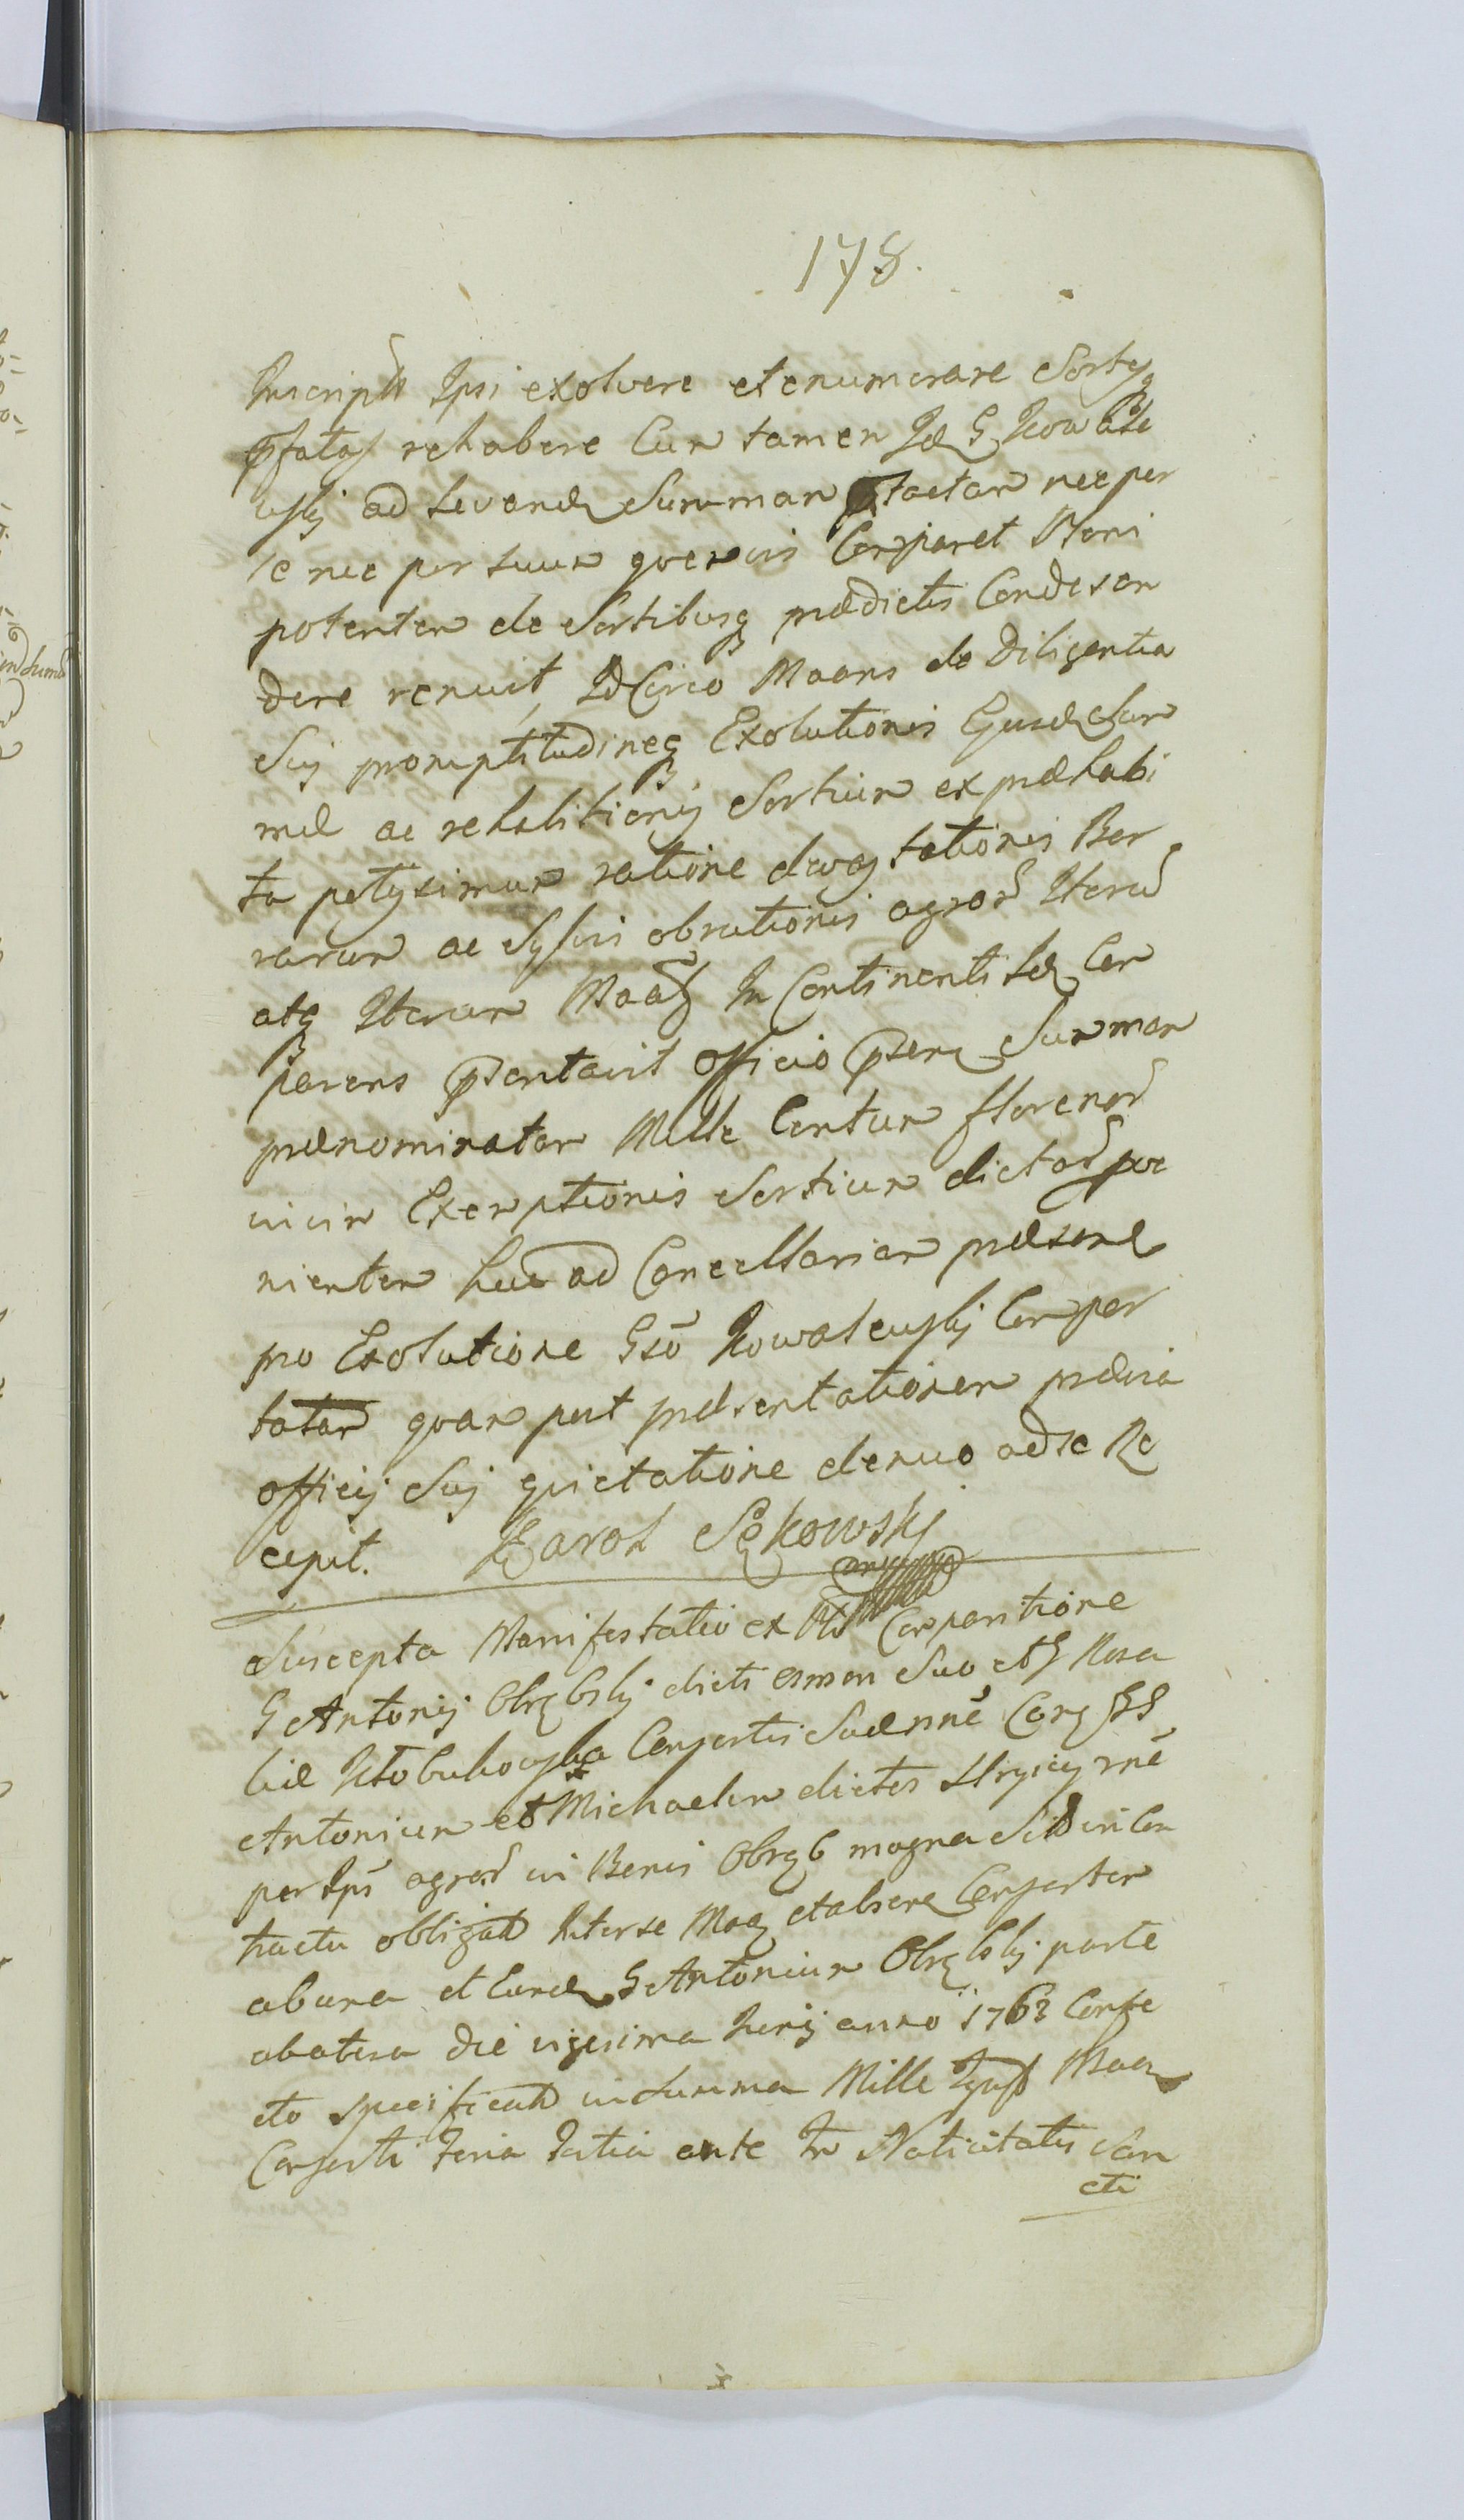 178.
Inscript Ipsi exolvere et enumerare Sortesq
pfatas rehabere Cum tamen Id G Kowale
wski ad Levand Summam ptactam nec per
se nec per suum quemvis Comparet Pleni
potentem de Sortibusq prædictis Condescen
dere renuit, IdCirco Maans de Diligentia
Sui promptitudineq Exolutionis Ejusd Sum
mæ ac rehabitionis Sortium ex præhabi
ta potissimum ratione devastationis Bor
rarum ac Sylvis obrutionis agror Iterum
atq Iterum Maas In Continenti Id Com
parens psentavit officio psen Summam
prænominatam Mille Centum florenor
vim Exemptionis Sortium dictar perve
nientem huc ad Cancellariam præsen
pro Exolutione Gso Kowalewski Compor
tatam quam post præsentationem prævia
officij Sui quietatione denuo ad se Re
cepit. Karol Sękowski
Suscepta Manifestatio ex Comparitione
G Antonij Obrębski dicti omen Suo et G Rosa
liæ Kłobukowska Consortis Suæ nne Con GG
Antonium et Michaelem dictos Stryicy rne
per Ips agror in Bonis Obręb magna Sitis in Con
tractu obligat Inter se Maa et absen Consortem
ab una et eund G Antonium Obrębski parte
ab altera die vigesima Junij anno 1763 Confe
cto specificat in Summa Mille Typf Maan
Consorti Feria Tertia ante Fm Nativitatis San
cti